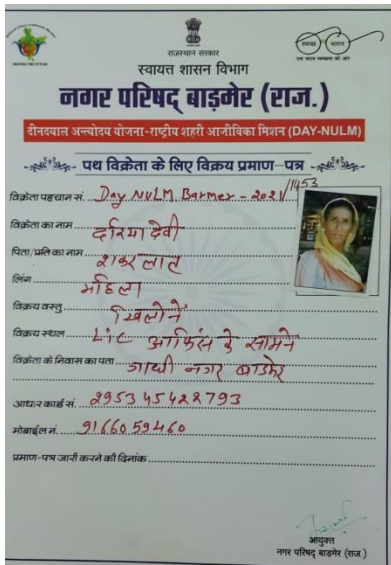 राजस्थान सरकार
स्वच्छ भारत
एक कदम स्वच्छता की ओर
स्वायत्त शासन विभाग
नगर परिषद् बाड़मेर (राज.)
दीनदयाल अन्त्योदय योजना-राष्ट्रीय शहरी आजीविका मिशन (DAY-NULM)
पथ विक्रेता के लिए विक्रय प्रमाण-पत्र
विक्रेता पहचान सं. Day NULM Barmer - 2021/1453
विक्रेता का नाम दरिया देवी
पिता/पति का नाम शंकर लाल
लिंग महिला
विक्रय वस्तु खिलोने
विक्रय स्थल Lic आफिस के सामने
विक्रेता के निवास का पता गांधी नगर बाडमेर
आधार कार्ड सं. 295345422793
मोबाईल नं. 9166059460
प्रमाण-पत्र जारी करने की दिनांक
आयुक्त
नगर परिषद् बाड़मेर (राज.)